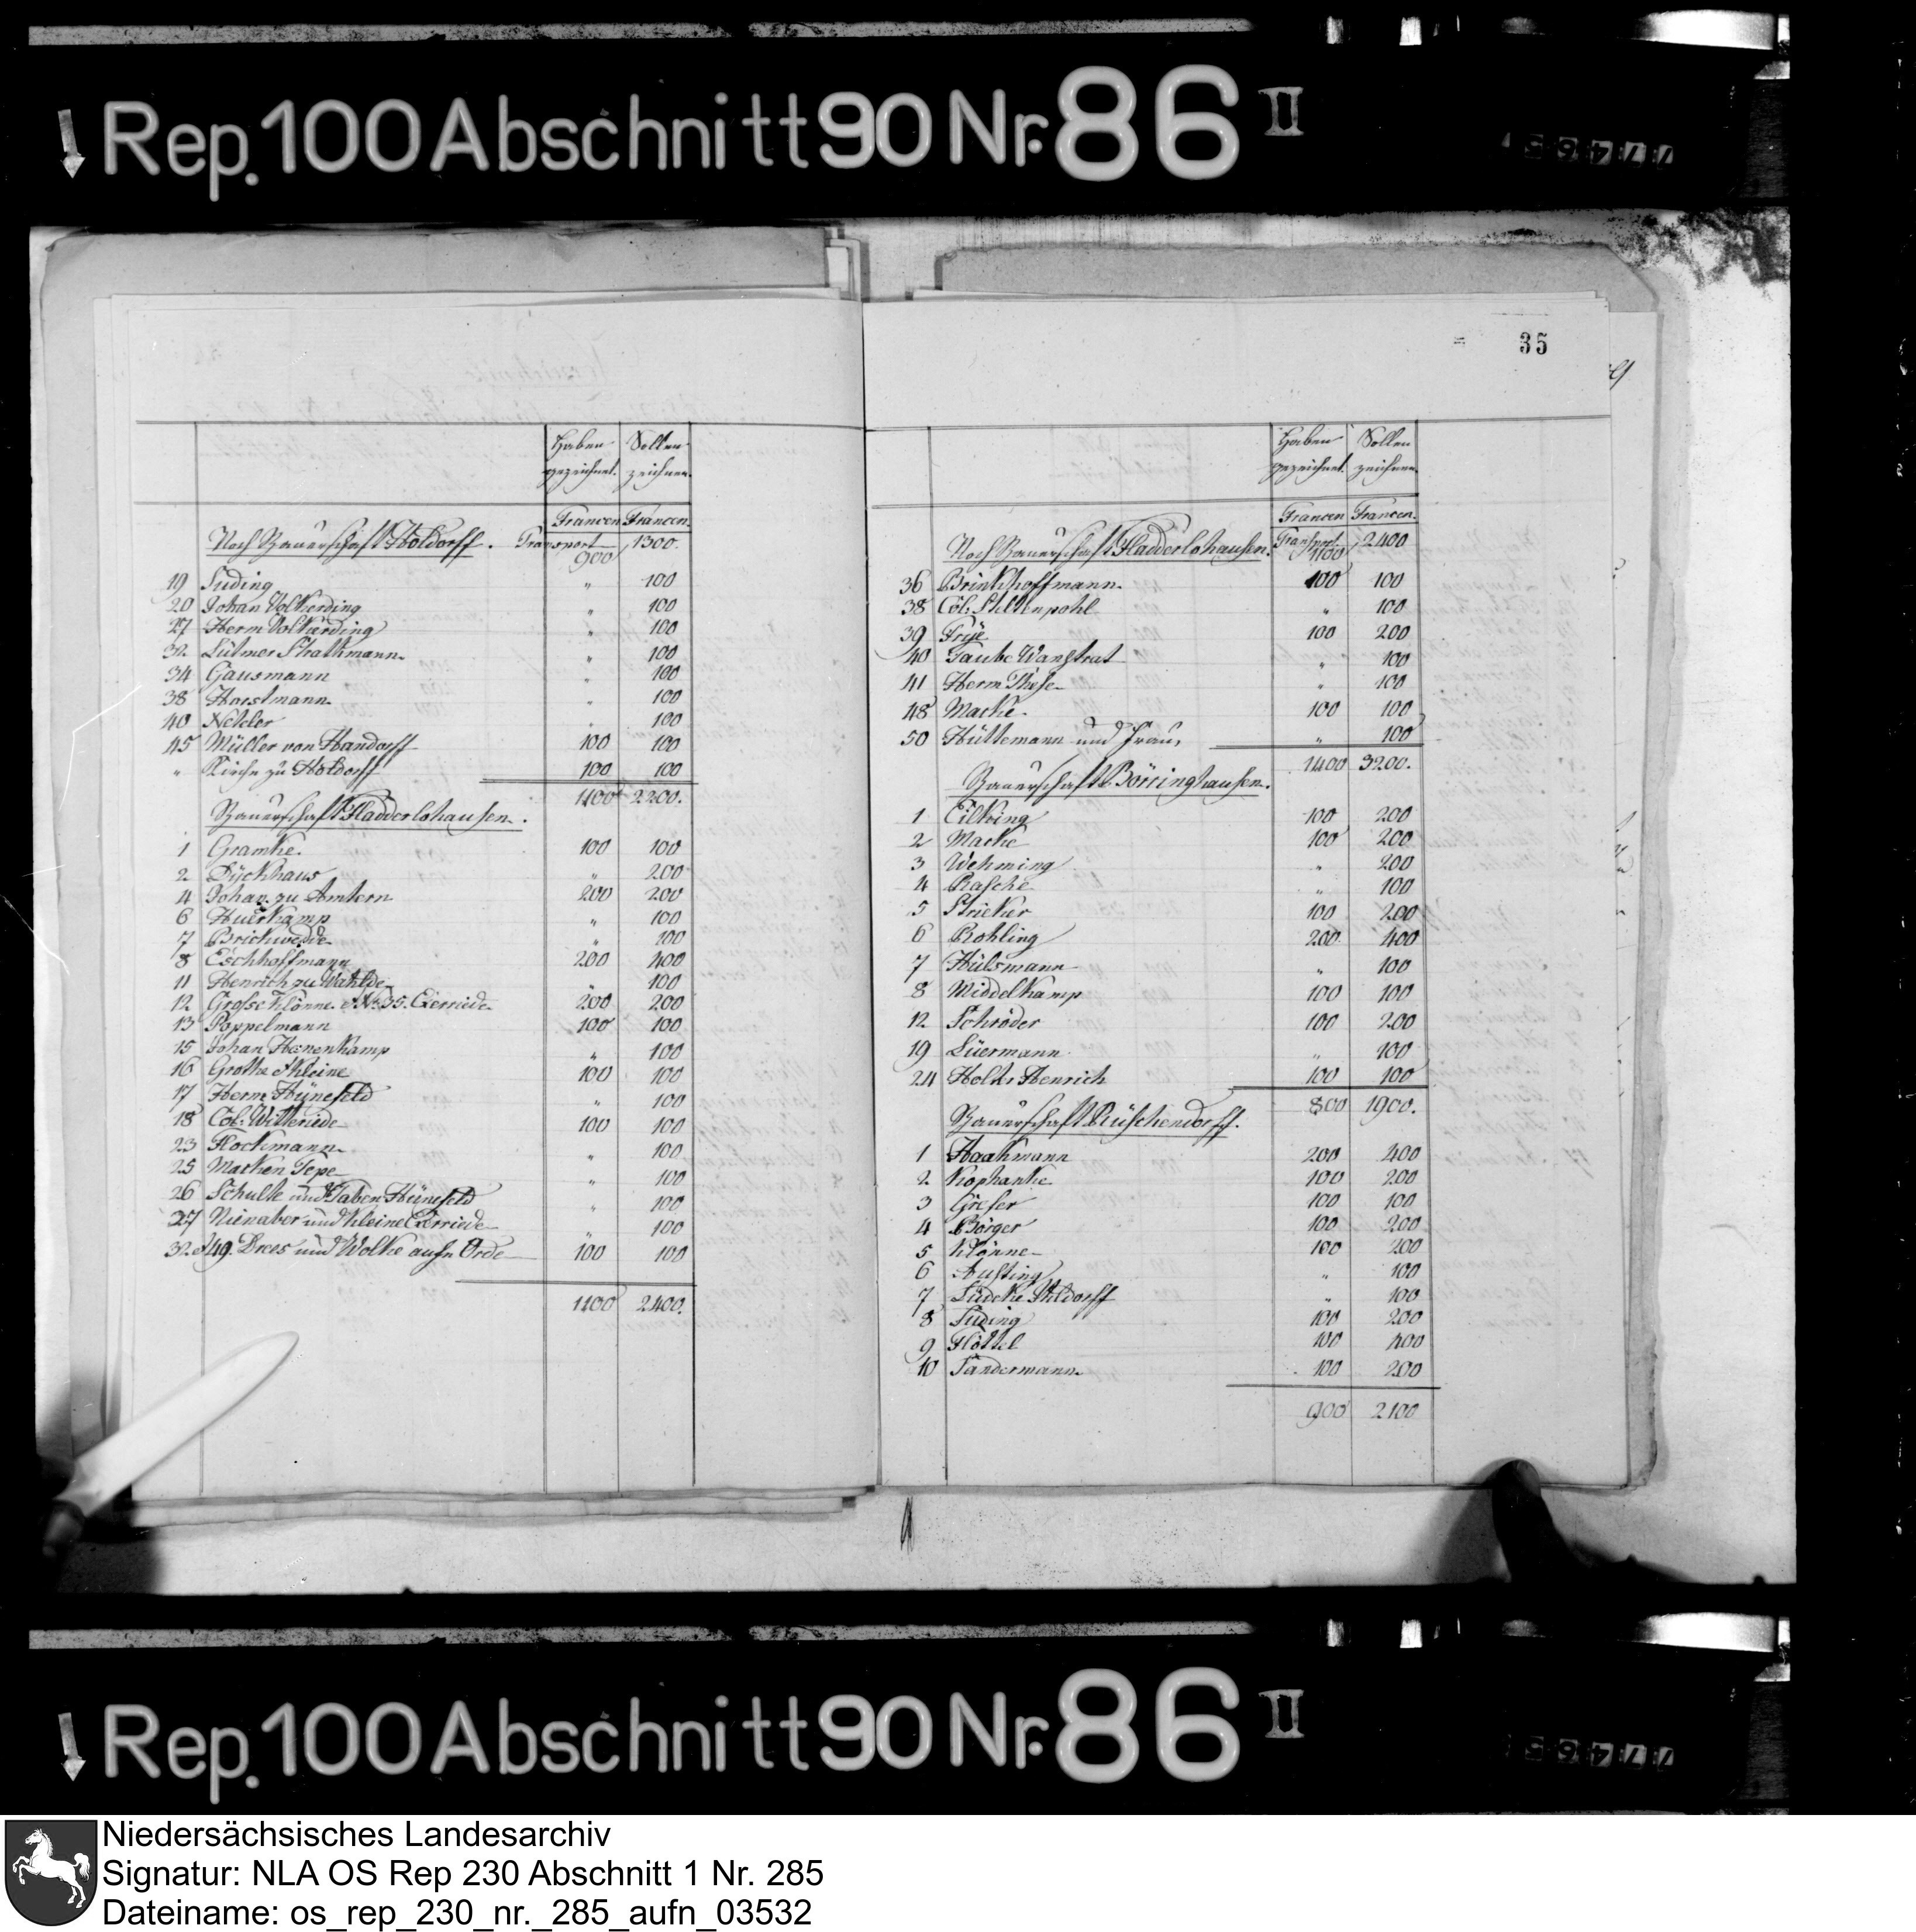 Rep. 100 Abschnitt 90 Nr. 86 II
35
Haben gezeichnet. Sollen zeichnen.
Francen Francen.
Noch Bauerschaft Holdorff. Transport 900 1300.
19 Suding " 100
20 Johan Volkerding " 100
27 Herm Volkerding " 100
32. Lülmer Strathmann " 100
34 Gausmann " 100
38 Horstmann " 100
40 " 100
45 Müller von Handorff 100 100
" Kirche zu Holdorff 100 100
1100 2200.
Bauerschaft Fladderlohausen.
1 Gramke. 100 100
2 Dyckhaus " 200
4 Johan zu Amtern 200 200
6 Huerkamp " 100
7 Brickwedde " 100
8 Eschhoffmann 200 400
11 Henrich zu Wahlde " 100
12 Grosse Klönne No. 35. Exerriede 200 200
13 Poppelmann 100 100
15 Johan Hanenkamp " 100
16 Grothe Kleine 100 100
17 Herm Hünefeld " 100
18 Col: Witteriede 100 100
23 Flockmann " 100
25 Marken Tepe " 100
26 Schulte und Taben Hünefeld " 100
27 Nienaber und Kleine Exerriede " 100
32. 49. Drees und Wolke aufn Orde 100 100
1100 2400.
Haben gezeichnet. Sollen zeichnen.
Francen Francen.
Noch Bauerschaft Fladderlohausen. Transport 1100 2400
36 Brinkhoffmann 100 100
38 Col: Stltenpohl " 100
39 Frye 100 200
40 Taube Wanstrat " 100
41 Herm These " 100
48 Macke 100 100
50 Hüttemann und Frau, " 100
1400 3200.
Bauerschaft Börringhausen.
1 Eilking 100 200
2 Macke 100 200
3 Wehming " 200
4 Rasche " 100
5 Stricker 100 200
6 Rohling 200 400
7 Hülsmann " 100
8 Middelkamp 100 100
12 Schröder 100 200
19 Lüermann " 100
24 Holt Henrich 100 100
800 1900.
Bauerschaft Rüschendorff.
1 Haakmann 200 400
2 Kophanke 100 200
3 Greser 100 100
4 Börger 100 200
5 Klönne 100 200
6 Austing " 100
7 Lüdeke Stldorff " 100
8 Suding 100 200
9 Flöttel 100 400
10 Sandermann 100 200
900 2100
Rep. 100 Abschnitt 90 Nr. 86 II
Niedersächsisches Landesarchiv
Signatur: NLA OS Rep 230 Abschnitt 1 Nr. 285
Dateiname: os_rep_230_nr._285_aufn_03532